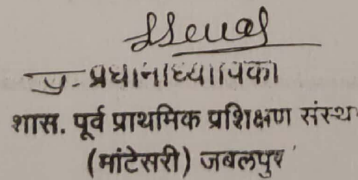 प्र. प्रधानाध्यापिका
शास. पूर्व प्राथमिक प्रशिक्षण संस्थ
(मांटेसरी) जबलपुर